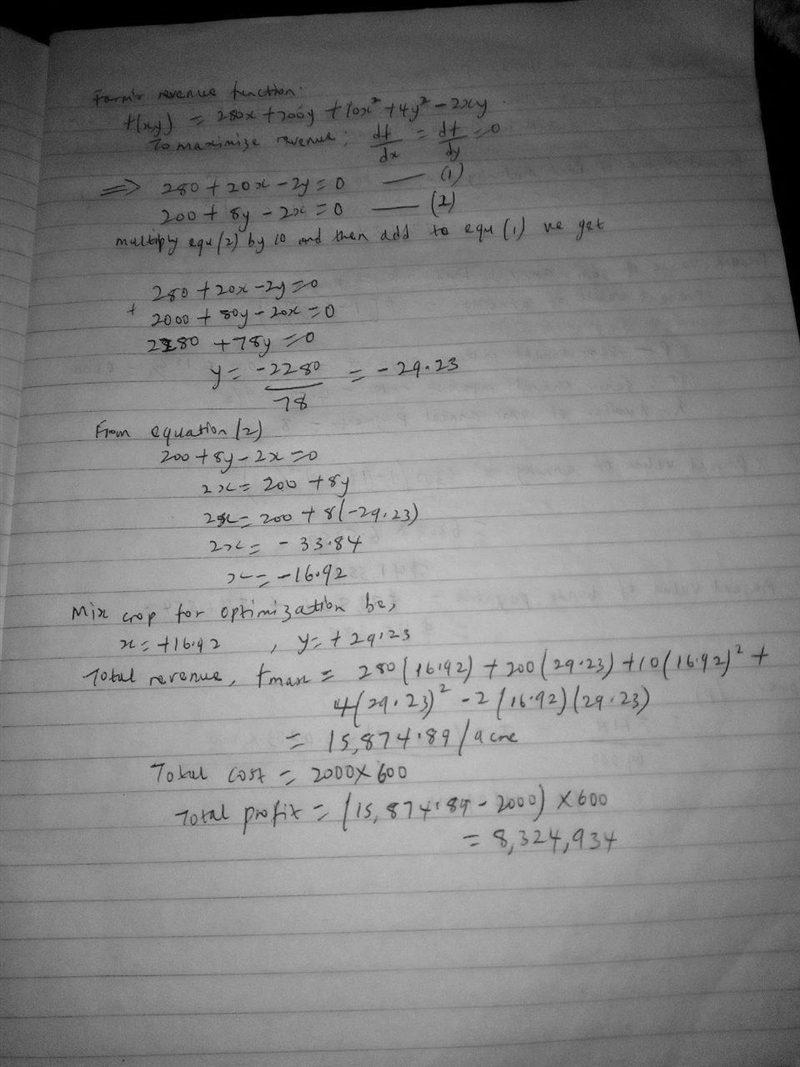 Farm's revenue function:
f(xy) = 280x + 200y + 10x² + 4y² - 2xy.
To maximize revenue; df/dx = df/dy = 0
⟹ 280 + 20x - 2y = 0 — (1)
200 + 8y - 2x = 0 — (2)
multiply equ (2) by 10 and then add to equ (1) we get
280 + 20x - 2y = 0
+ 2000 + 80y - 20x = 0
2280 + 78y = 0
y = -2280/78 = -29.23
From equation (2)
200 + 8y - 2x = 0
2x = 200 + 8y
2x = 200 + 8(-29.23)
2x = - 33.84
x = -16.92
Mix crop for optimization be,
x = +16.92 , y = + 29.23
Total revenue, fmax = 280(16.92) + 200(29.23) + 10(16.92)² +
4(29.23)² - 2(16.92)(29.23)
= 15,874.89/acre
Total cost = 2000 X 600
Total profit = (15,874.89 - 2000) X 600
= 8,324,934